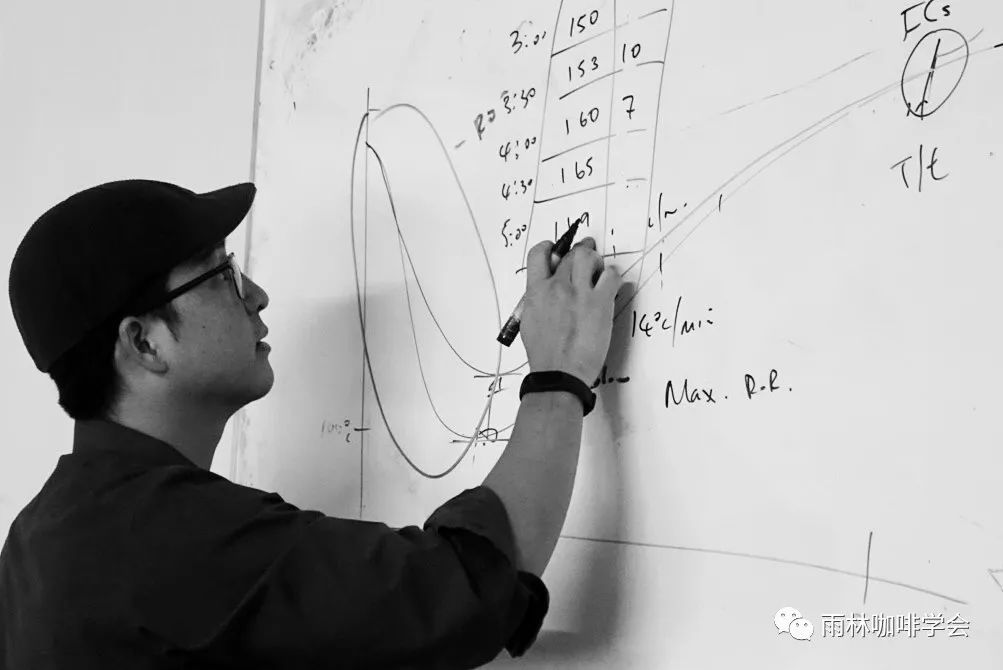 3:00 150
3:30 153 10
4:00 160 7
4:30 165
5:00
100°c
14°c/min
Max. R.R.
T/t
雨林咖啡学会